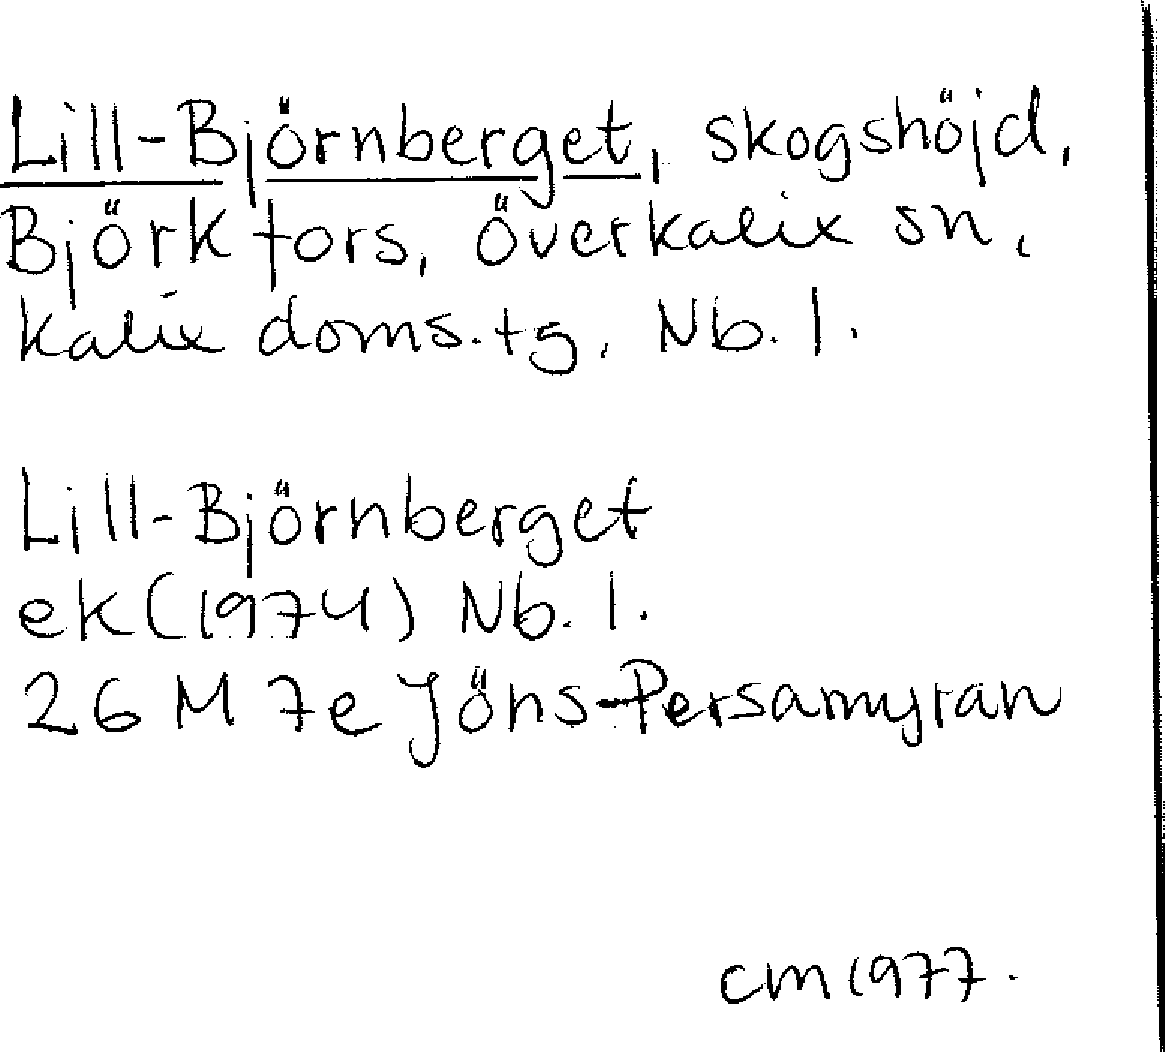 Lill-Björnberget, skogshöjd,
Björkfors, Överkalix sn,
Kalix doms.tg, Nb. l.
Lill-Björnberget
ek (1974) Nb. l.
26 M 7e Jöns-Persamyran
CM 1977.